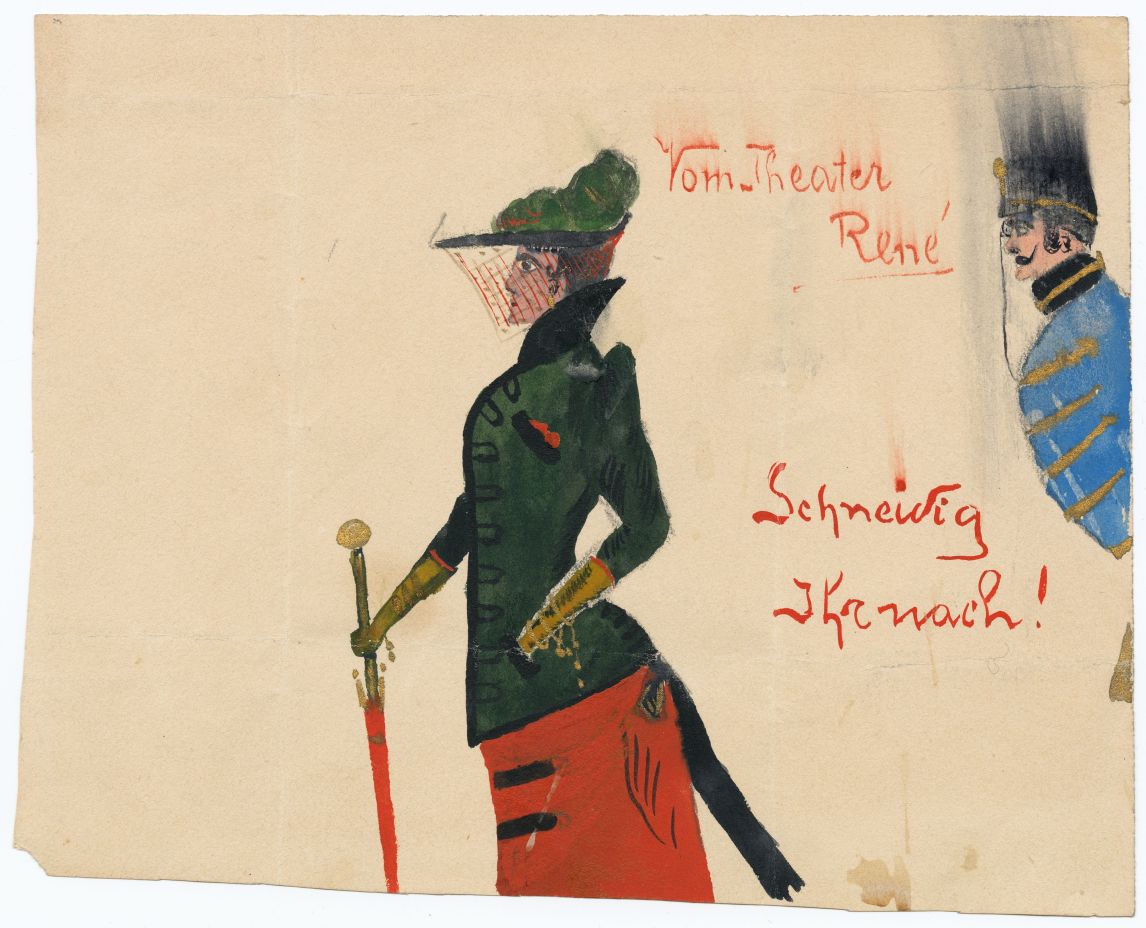 Vom Theater
René
Schneidig
Ihr nach!